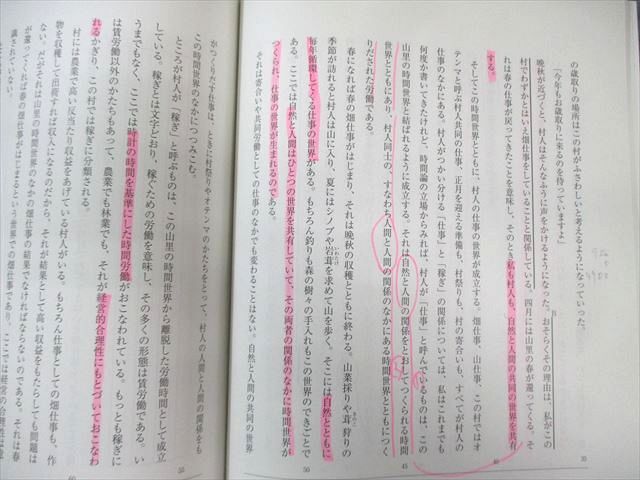 の歳取りの場所はこの村がふさわしいと考えるようになっていった。
「今年もお歳取りに来るのを待っていますよ」
晩秋が近づくと、村人はそんなふうに声をかけるようになった。おそらくその理由は、私がこの
村でわずかとはいえ畑仕事をしていることと関係している。四月には山里の春が還ってくる。そ
れは春の仕事が戻ってきたことを意味し、そのとき私も村人も、自然と人間の共同の世界を共有
する。
そしてこの時間世界とともに、村人の仕事の世界が成立する。畑仕事、山仕事、この村ではオ
テンマと呼ぶ村人共同の仕事、正月を迎える準備も、村祭りも、村の寄合いも、すべてが村人の
仕事のなかにある。村人がつかい分ける「仕事」と「稼ぎ」の関係については、私はこれまでも
何度か書いてきたけれど、時間論の立場からみれば、村人が「仕事」と呼んでいるものは、この
山里の時間世界と結ばれるように成立する。それは自然と人間の関係をとおしてつくられる時間
世界とともにあり、村人同士の、すなわち人間と人間の関係のなかにある時間世界とともにつく
りだされた労働である。
春になれば春の畑仕事がはじまり、それは晩秋の収穫とともに終わる。山菜採りや茸狩りの
季節が訪れると村人は山に入り、夏にはシノブや岩茸を求めて山を歩く。そこには自然とともに
毎年循環してくる仕事の世界がある。もちろん釣りも森の樹々の手入れもこの世界のできごとで
ある。ここでは自然と人間はひとつの世界を共有していて、その両者の関係のなかに時間世界が
つくられ、仕事の世界が生まれるのである。
それは寄合いや共同労働としての仕事のなかでも変わることはない。自然と人間の共同の世界
35
40
45
50
がつくりだす仕事は、ときに村祭りやオテンマのかたちをとって、村人の人間と人間の関係をも
この時間世界のなかにつつみこむ。
ところが村人が「稼ぎ」と呼ぶものは、この山里の時間世界から離脱した労働時間として成立
している。稼ぎとは文字どおり、稼ぐための労働を意味し、その多くの形態は賃労働である。い
うまでもなく、ここでは時計の時間を基準にした時間労働がおこなわれている。もっとも稼ぎに
は賃労働以外のかたちもあって、農業でも林業でも、それが経営的合理性にもとづいておこなわ
れるかぎり、この村では稼ぎに分類される。
村には農業で高い反当たり収益をあげている村人がいる。もちろん仕事としての畑仕事も、作
物を収穫して出荷すれば収入になるのだから、それが結果として高い収益をもたらしても問題は
ない。だがそれは山里の時間世界のなかの畑仕事の結果でなければならないのである。それは春
が還ってくれば春の畑仕事がはじまるという世界での畑仕事であり、ここでは経営的合理性は意
識されていない。
55
60